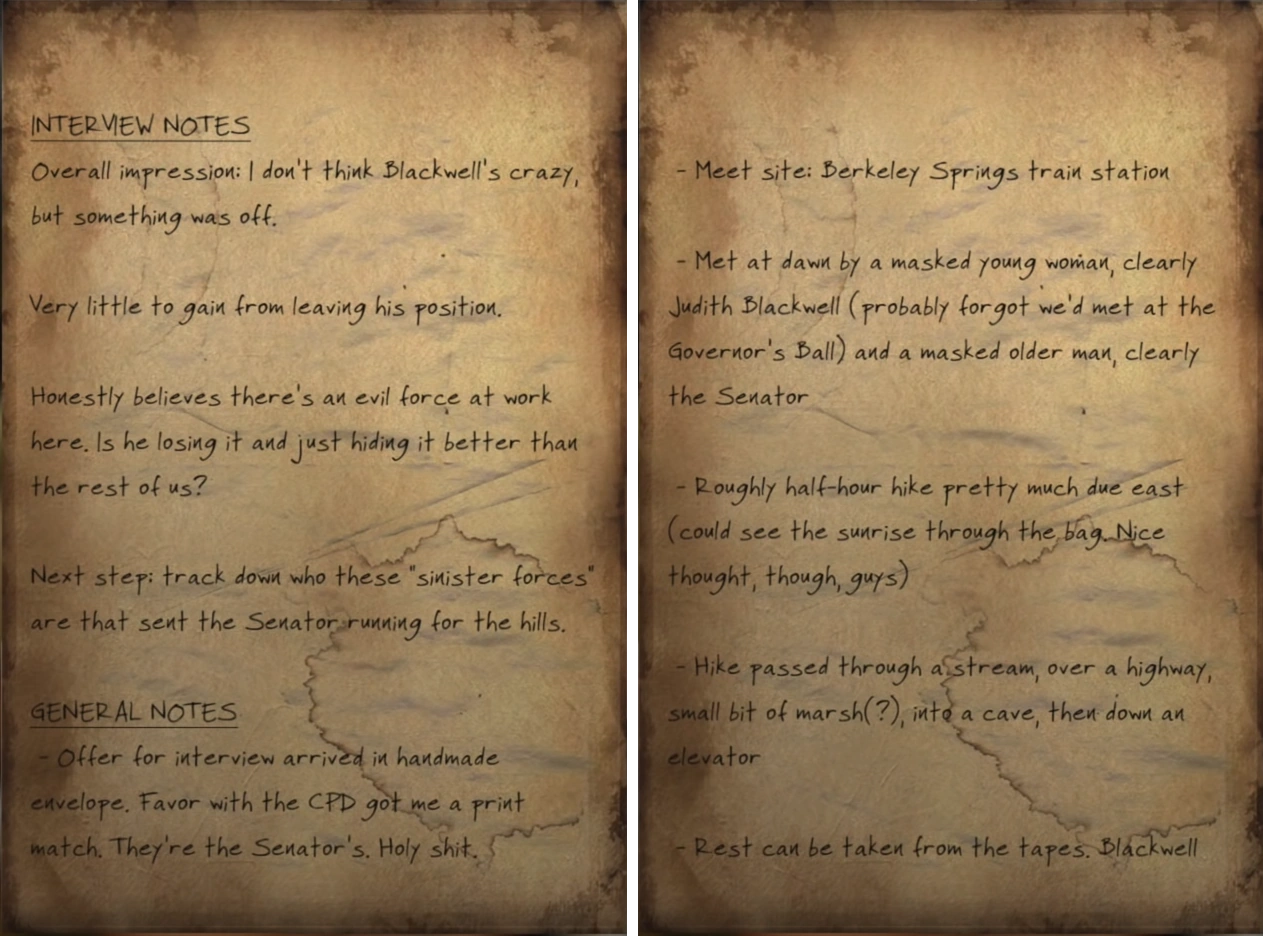 INTERVIEW NOTES
Overall impression: I don't think Blackwell's crazy,
but something was off.
Very little to gain from leaving his position.
Honestly believes there's an evil force at work
here. Is he losing it and just hiding it better than
the rest of us?
Next step: track down who these "sinister forces"
are that sent the Senator running for the hills.
GENERAL NOTES
- Offer for interview arrived in handmade
envelope. Favor with the CPD got me a print
match. They're the Senator's. Holy shit.
- Meet site: Berkeley Springs train station
- Met at dawn by a masked young woman, clearly
Judith Blackwell (probably forgot we'd met at the
Governor's Ball) and a masked older man, clearly
the Senator
- Roughly half-hour hike pretty much due east
(could see the sunrise through the bag. Nice
thought, though, guys)
- Hike passed through a stream, over a highway,
small bit of marsh(?), into a cave, then down an
elevator
- Rest can be taken from the tapes. Blackwell